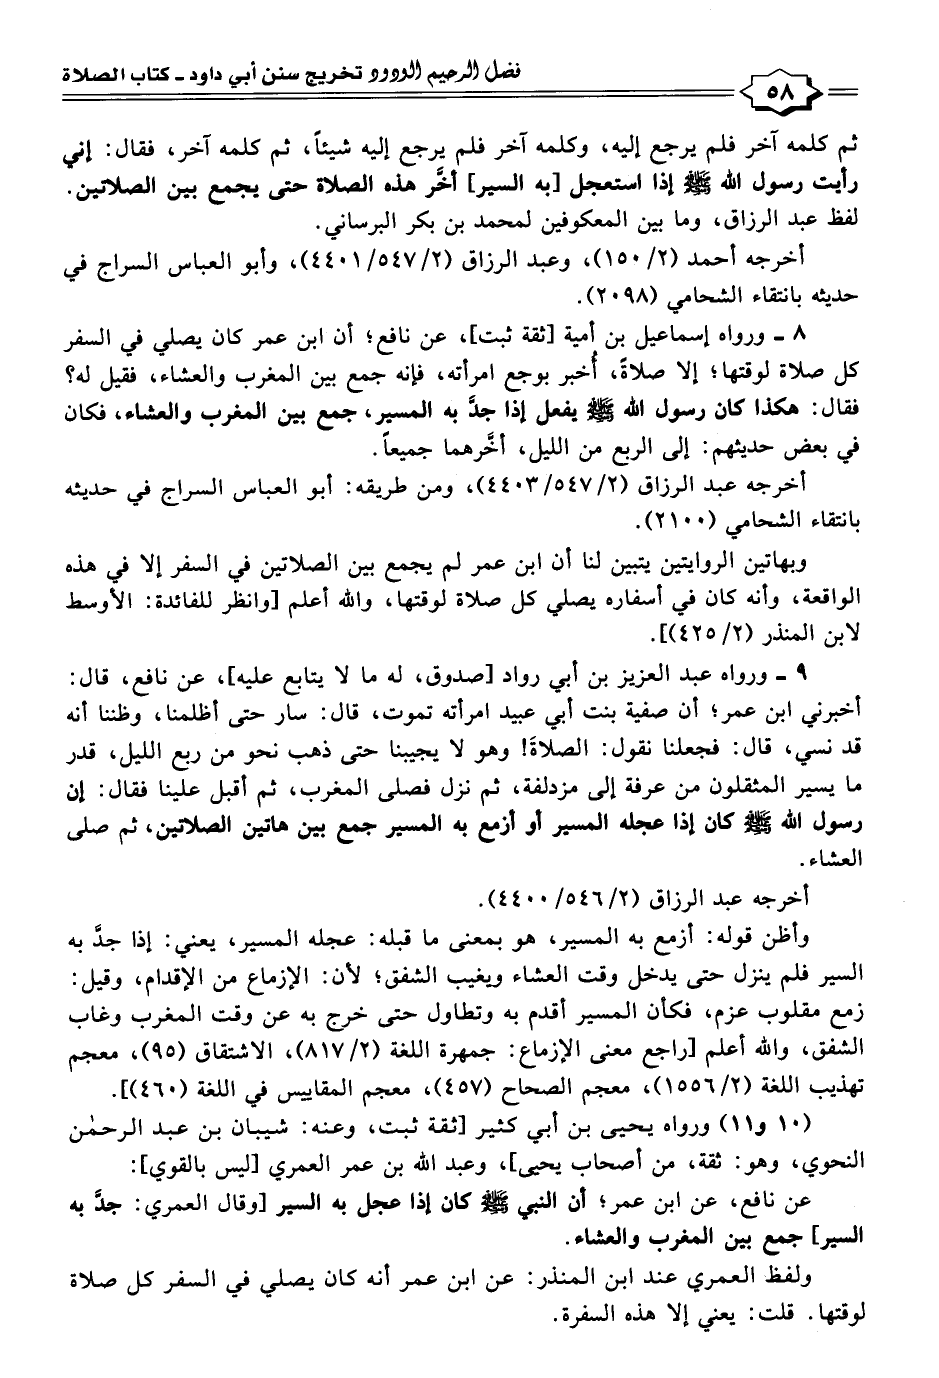 فضل الرحيم الودود تخريج سنن أبي داود - كتاب الصلاة
٥٨
ثم كلمه آخر فلم يرجع إليه، وكلمه آخر فلم يرجع إليه شيئاً، ثم كلمه آخر، فقال: إني
رأيت رسول الله ﷺ إذا استعجل [به السير] أخَّر هذه الصلاة حتى يجمع بين الصلاتين.
لفظ عبد الرزاق، وما بين المعكوفين لمحمد بن بكر البرساني.
أخرجه أحمد (٢/ ١٥٠)، وعبد الرزاق (٢/ ٥٤٧/ ٤٤٠١)، وأبو العباس السراج في
حديثه بانتقاء الشحامي (٢٠٩٨).
٨ - ورواه إسماعيل بن أمية [ثقة ثبت]، عن نافع؛ أن ابن عمر كان يصلي في السفر
كل صلاة لوقتها؛ إلا صلاةً، أُخبر بوجع امرأته، فإنه جمع بين المغرب والعشاء، فقيل له؟
فقال: هكذا كان رسول الله ﷺ يفعل إذا جدَّ به المسير، جمع بين المغرب والعشاء، فكان
في بعض حديثهم: إلى الربع من الليل، أخَّرهما جميعاً.
أخرجه عبد الرزاق (٢/ ٥٤٧/ ٤٤٠٣)، ومن طريقه: أبو العباس السراج في حديثه
بانتقاء الشحامي (٢١٠٠).
وبهاتين الروايتين يتبين لنا أن ابن عمر لم يجمع بين الصلاتين في السفر إلا في هذه
الواقعة، وأنه كان في أسفاره يصلي كل صلاة لوقتها، والله أعلم [وانظر للفائدة: الأوسط
لابن المنذر (٢/ ٤٢٥)].
٩ - ورواه عبد العزيز بن أبي رواد [صدوق، له ما لا يتابع عليه]، عن نافع، قال:
أخبرني ابن عمر؛ أن صفية بنت أبي عبيد امرأته تموت، قال: سار حتى أظلمنا، وظننا أنه
قد نسي، قال: فجعلنا نقول: الصلاةَ! وهو لا يجيبنا حتى ذهب نحو من ربع الليل، قدر
ما يسير المثقلون من عرفة إلى مزدلفة، ثم نزل فصلى المغرب، ثم أقبل علينا فقال: إن
رسول الله ﷺ كان إذا عجله المسير أو أزمع به المسير جمع بين هاتين الصلاتين، ثم صلى
العشاء.
أخرجه عبد الرزاق (٢/ ٥٤٦/ ٤٤٠٠).
وأظن قوله: أزمع به المسير، هو بمعنى ما قبله: عجله المسير، يعني: إذا جدَّ به
السير فلم ينزل حتى يدخل وقت العشاء ويغيب الشفق؛ لأن: الإزماع من الإقدام، وقيل:
زمع مقلوب عزم، فكأن المسير أقدم به وتطاول حتى خرج به عن وقت المغرب وغاب
الشفق، والله أعلم [راجع معنى الإزماع: جمهرة اللغة (٢/ ٨١٧)، الاشتقاق (٩٥)، معجم
تهذيب اللغة (٢/ ١٥٥٦)، معجم الصحاح (٤٥٧)، معجم المقاييس في اللغة (٤٦٠)].
(١٠ و١١) ورواه يحيى بن أبي كثير [ثقة ثبت، وعنه: شيبان بن عبد الرحمٰن
النحوي، وهو: ثقة، من أصحاب يحيى]، وعبد الله بن عمر العمري [ليس بالقوي]:
عن نافع، عن ابن عمر؛ أن النبي ﷺ كان إذا عجل به السير [وقال العمري: جدَّ به
السير] جمع بين المغرب والعشاء.
ولفظ العمري عند ابن المنذر: عن ابن عمر أنه كان يصلي في السفر كل صلاة
لوقتها. قلت: يعني إلا هذه السفرة.